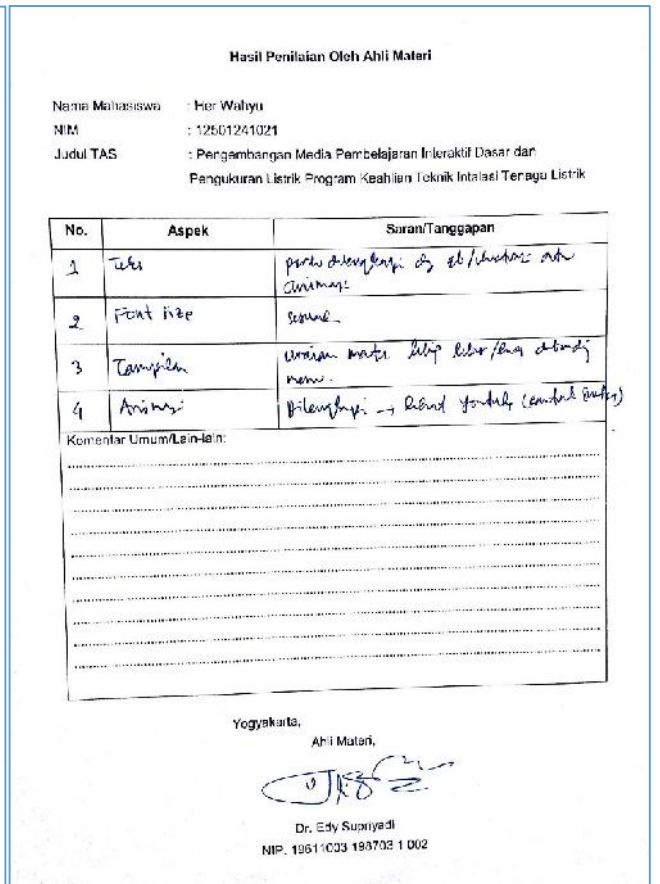 Hasil Penilaian Oleh Ahli Materi
Nama Mahasiswa : Her Wahyu
NIM : 12501241021
Judul TAS : Pengembangan Media Pembelajaran Interaktif Dasar dan
Pengukuran Listrik Program Keahlian Teknik Intalasi Tenaga Listrik
No. Aspek Saran/Tanggapan
1 Teks perlu dilengkapi dg
animasi
2 Font size sesuai
3 Tampilan uraian materi lebih
menu.
4 Animasi Dilengkapi → lihat youtube
Komentar Umum/Lain-lain:
Yogyakarta,
Ahli Materi,
Dr. Edy Supriyadi
NIP. 19611003 198703 1 002